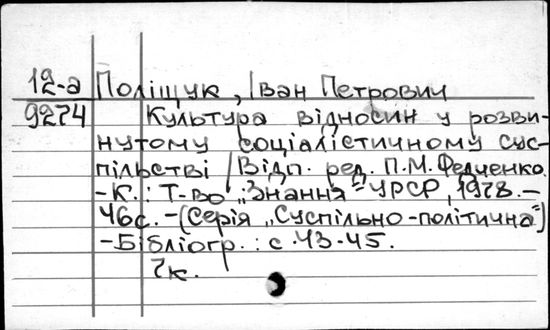 12-а Поліщук, Іван Петрович
9274 Культура відносин у розви-
нутому соціалістичному сус-
пільстві / Відп. ред. П.М. Федченко.
-К.: Т-во „Знання" УРСР, 1978.-
46с. -(Серія „Суспільно-політична")
-Бібліогр.: с.43-45.
7к.